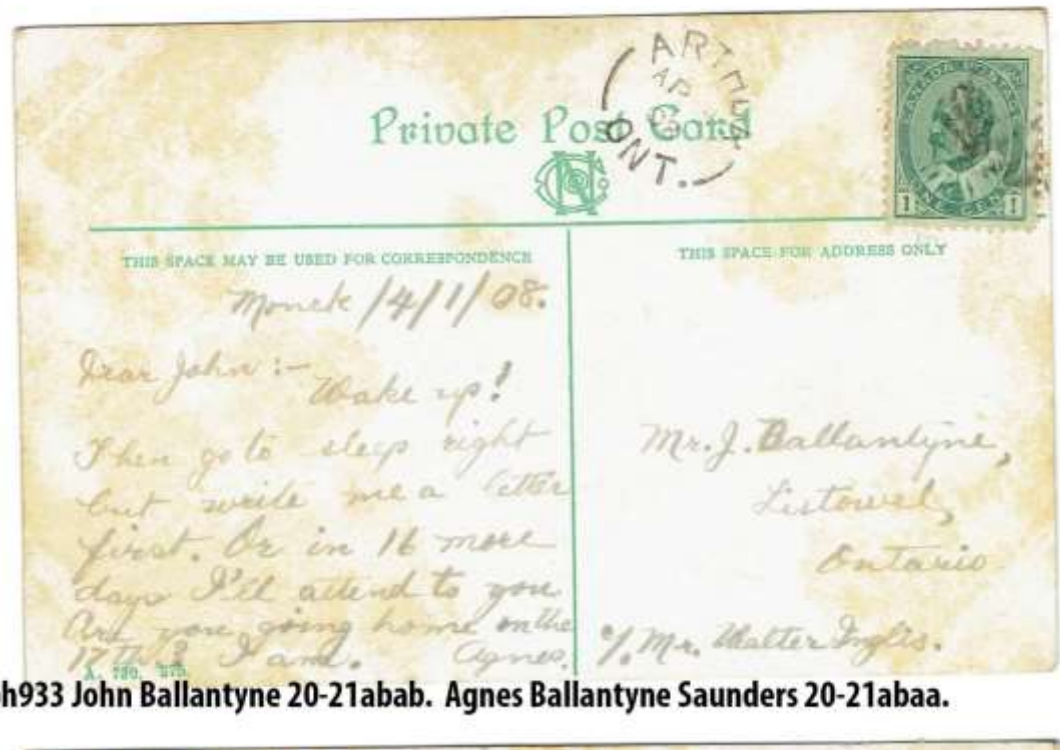 ARTHUR
AP
ONT.
Private Post Card
CANADA POSTAGE
1 ONE CENT 1
THIS SPACE MAY BE USED FOR CORRESPONDENCE
THIS SPACE FOR ADDRESS ONLY
Monck /4/1/08.
Dear John :-
Wake up!
Then go to sleep right
but write me a letter
first. Or in 16 more
days I'll attend to you
Are you going home on the
17th? I am. Agnes.
Mr. J. Ballantyne,
Listowel,
Ontario
c/. Mr. Walter Inglis.
A. 730. 275.
h933 John Ballantyne 20-21abab. Agnes Ballantyne Saunders 20-21abaa.